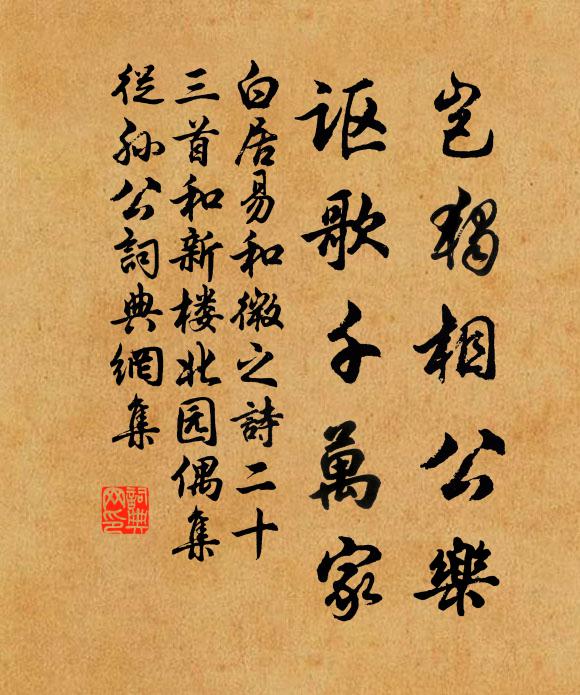 豈獨相公樂
謳歌千萬家
白居易和微之詩二十
三首和新楼北园偶集
從孙公詞典網集
詞典
网印